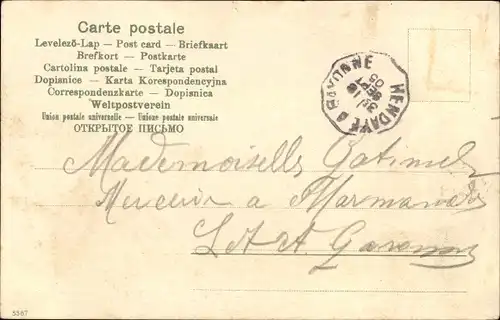 Carte postale
Levelező-Lap — Post card — Briefkaart
Brefkort — Postkarte
Cartolina postale — Tarjeta postal
Dopisnice — Karta Korespondencyjna
Correspondenzkarte — Dopisnica
Weltpostverein
Union postale universelle — Unione postale universale
ОТКРЫТОЕ ПИСЬМО
HENDAYE A BAYONNE
18
SEPT
05
Mademoiselles
a Marmande
Lot et Garonne
5567